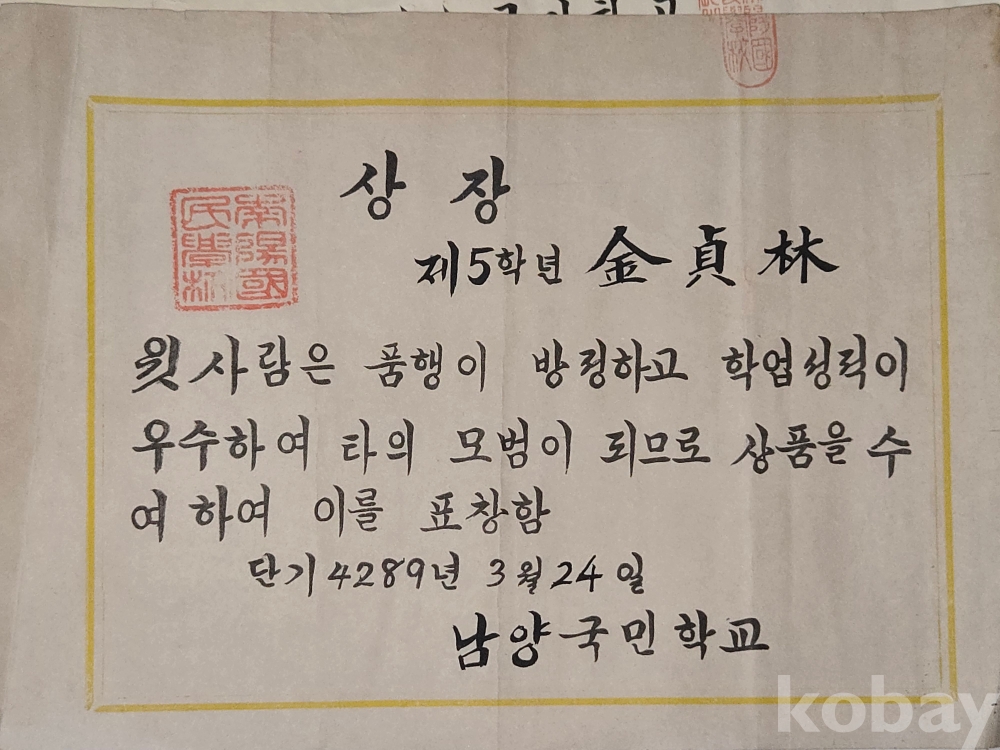 상장
제5학년 金貞林
윗사람은 품행이 방정하고 학업성적이
우수하여 타의 모범이 되므로 상품을 수
여하여 이를 표창함
단기 4289년 3월 24일
남양국민학교
南陽國民學校
kobay